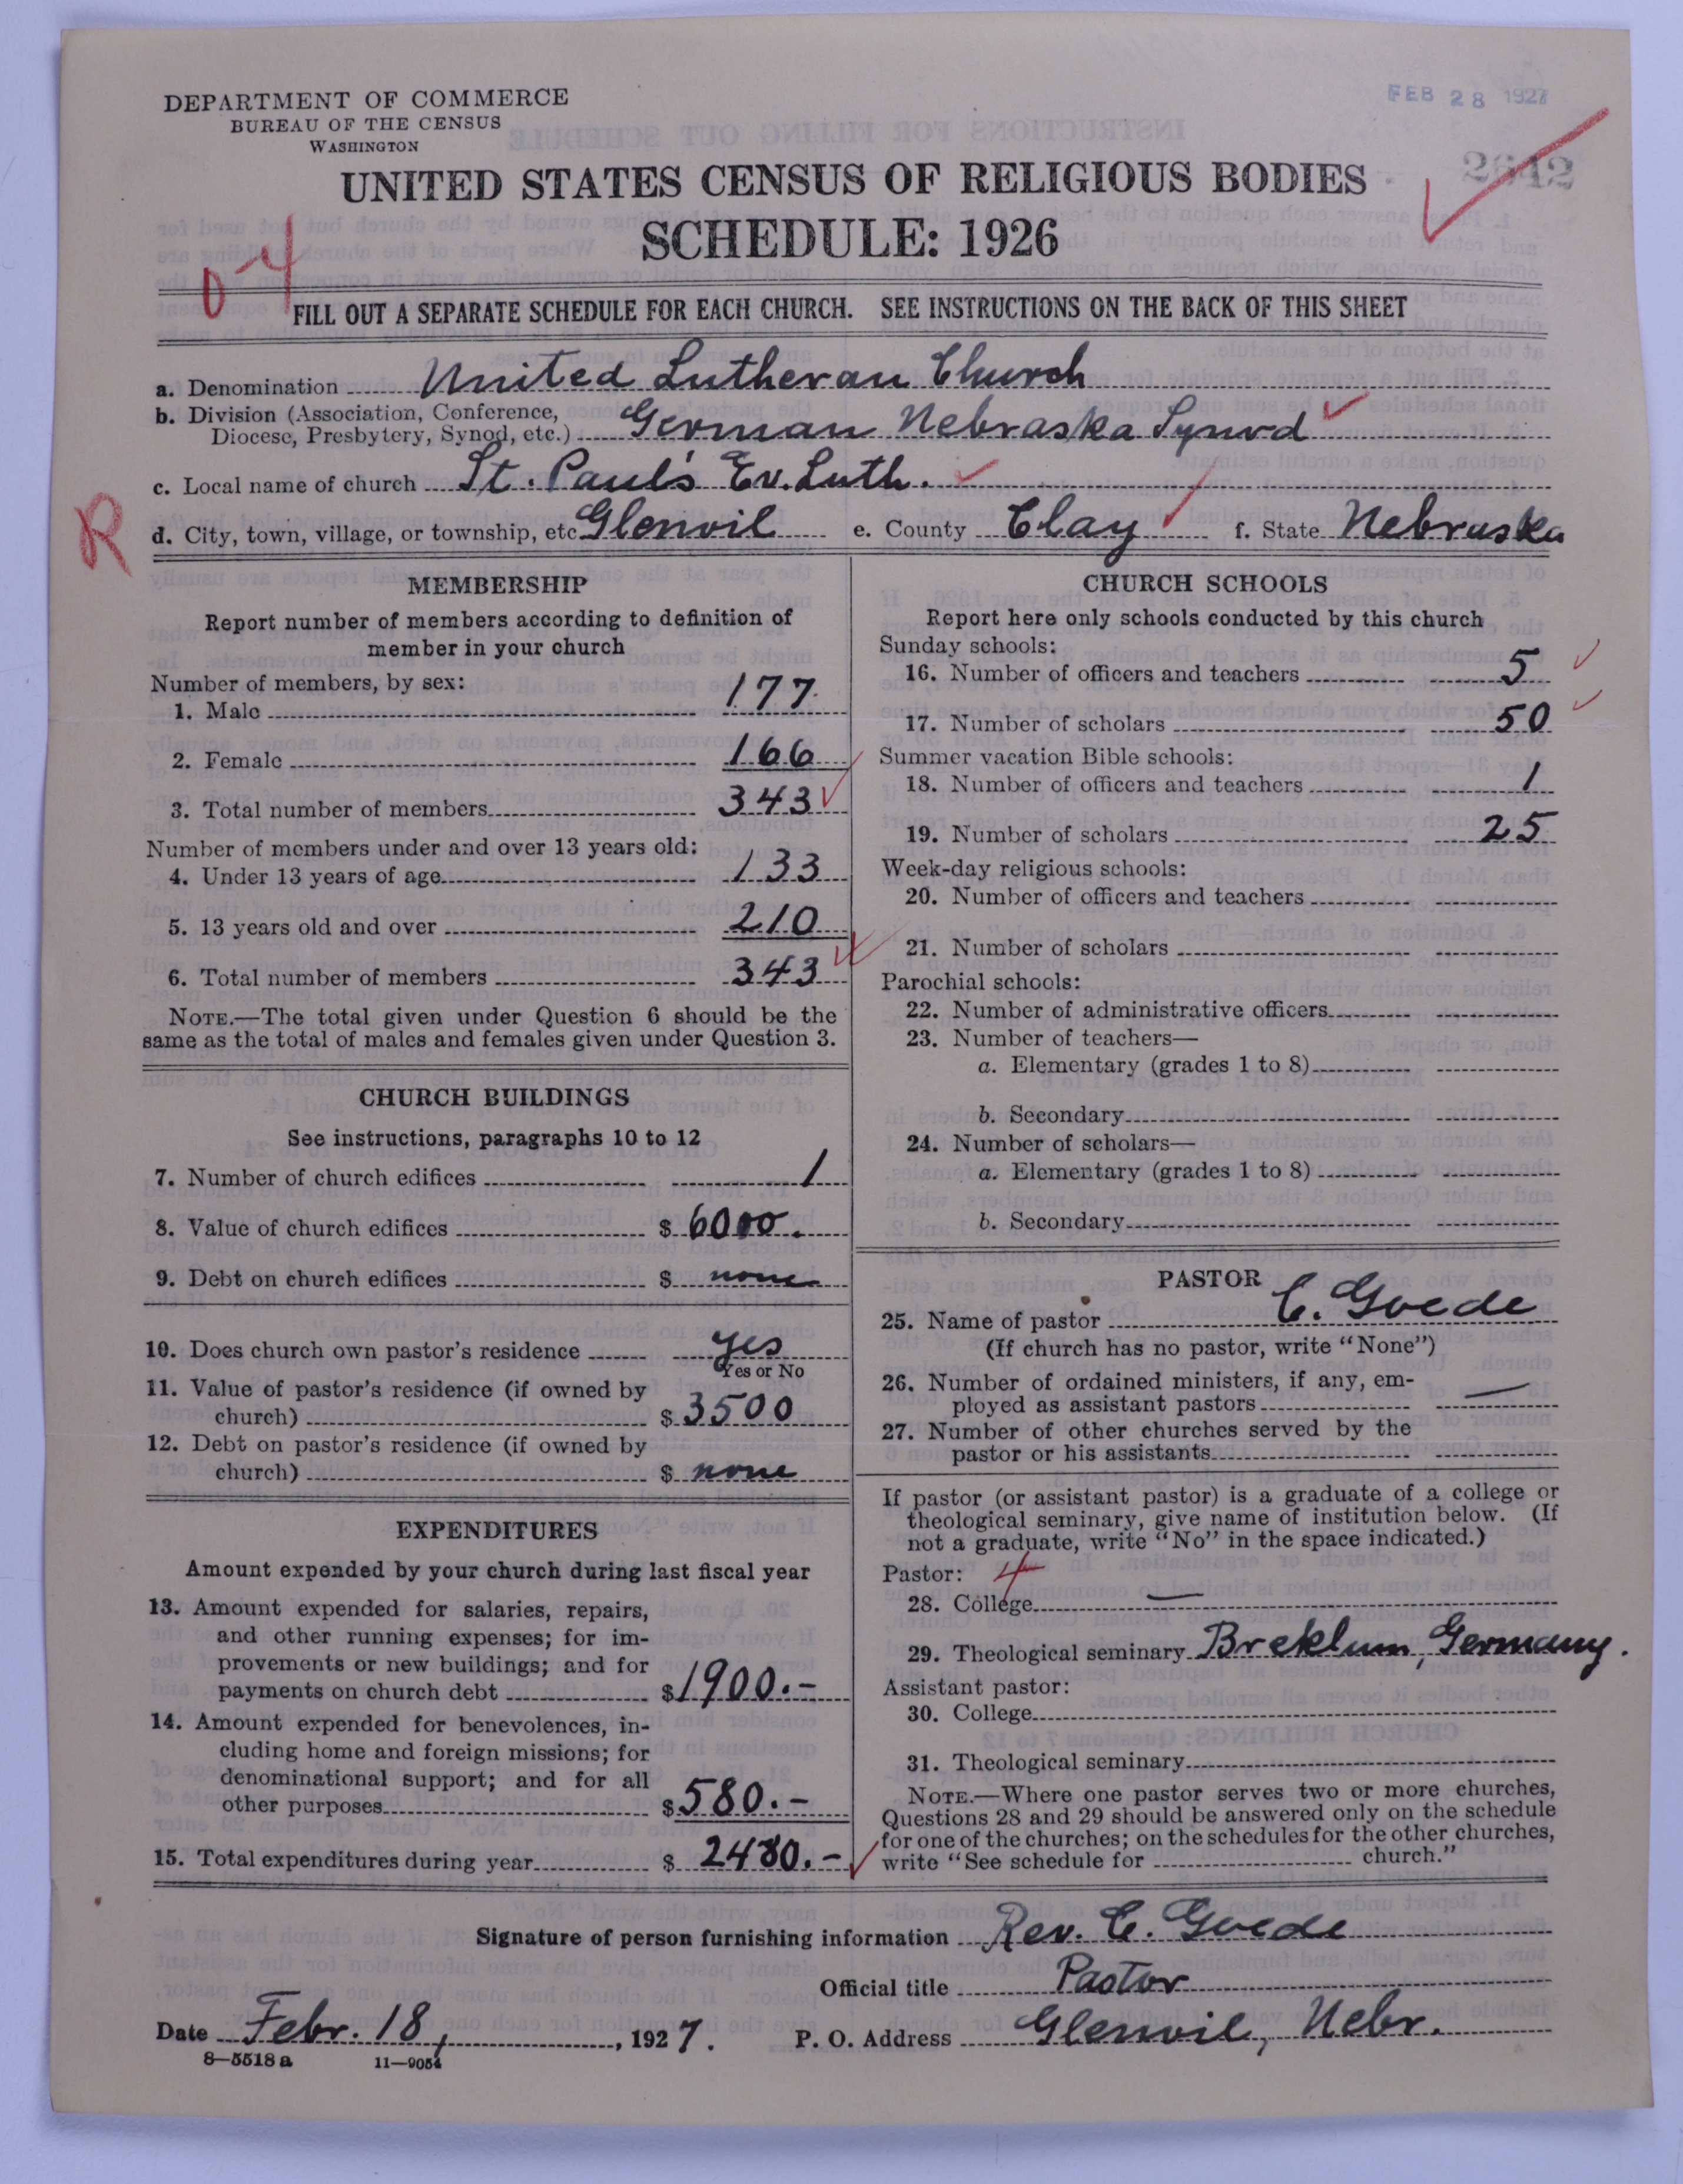 DEPARTMENT OF COMMERCE
BUREAU OF THE CENSUS
WASHINGTON
FEB 28 1927
2642
UNITED STATES CENSUS OF RELIGIOUS BODIES
SCHEDULE: 1926
FILL OUT A SEPARATE SCHEDULE FOR EACH CHURCH. SEE INSTRUCTIONS ON THE BACK OF THIS SHEET
a. Denomination United Lutheran Church
b. Division (Association, Conference,
Diocese, Presbytery, Synod, etc.) German Nebraska Synod
c. Local name of church St. Paul's Ev. Luth.
R
d. City, town, village, or township, etc. Glenvil e. County Clay f. State Nebraska
MEMBERSHIP
Report number of members according to definition of
member in your church
Number of members, by sex:
1. Male 177
2. Female 166
3. Total number of members 343
Number of members under and over 13 years old:
4. Under 13 years of age 133
5. 13 years old and over 210
6. Total number of members 343
NOTE.—The total given under Question 6 should be the
same as the total of males and females given under Question 3.
CHURCH BUILDINGS
See instructions, paragraphs 10 to 12
7. Number of church edifices 1
8. Value of church edifices $ 6000.
9. Debt on church edifices $ none
10. Does church own pastor's residence yes
Yes or No
11. Value of pastor's residence (if owned by
church) $ 3500
12. Debt on pastor's residence (if owned by
church) $ none
EXPENDITURES
Amount expended by your church during last fiscal year
13. Amount expended for salaries, repairs,
and other running expenses; for im-
provements or new buildings; and for
payments on church debt $1900.-
14. Amount expended for benevolences, in-
cluding home and foreign missions; for
denominational support; and for all
other purposes $580.-
15. Total expenditures during year $ 2480.-
CHURCH SCHOOLS
Report here only schools conducted by this church
Sunday schools:
16. Number of officers and teachers 5
17. Number of scholars 50
Summer vacation Bible schools:
18. Number of officers and teachers 1
19. Number of scholars 25
Week-day religious schools:
20. Number of officers and teachers
21. Number of scholars
Parochial schools:
22. Number of administrative officers
23. Number of teachers—
a. Elementary (grades 1 to 8)
b. Secondary
24. Number of scholars—
a. Elementary (grades 1 to 8)
b. Secondary
PASTOR
25. Name of pastor C. Goede
(If church has no pastor, write "None")
26. Number of ordained ministers, if any, em-
ployed as assistant pastors —
27. Number of other churches served by the
pastor or his assistants
If pastor (or assistant pastor) is a graduate of a college or
theological seminary, give name of institution below. (If
not a graduate, write "No" in the space indicated.)
Pastor: 4
28. College —
29. Theological seminary Breklum, Germany.
Assistant pastor:
30. College
31. Theological seminary
NOTE.—Where one pastor serves two or more churches,
Questions 28 and 29 should be answered only on the schedule
for one of the churches; on the schedules for the other churches,
write "See schedule for church."
Signature of person furnishing information Rev. C. Goede
Official title Pastor
Date Febr. 18, , 1927. P. O. Address Glenvil, Nebr.
8—5518 a 11—9054